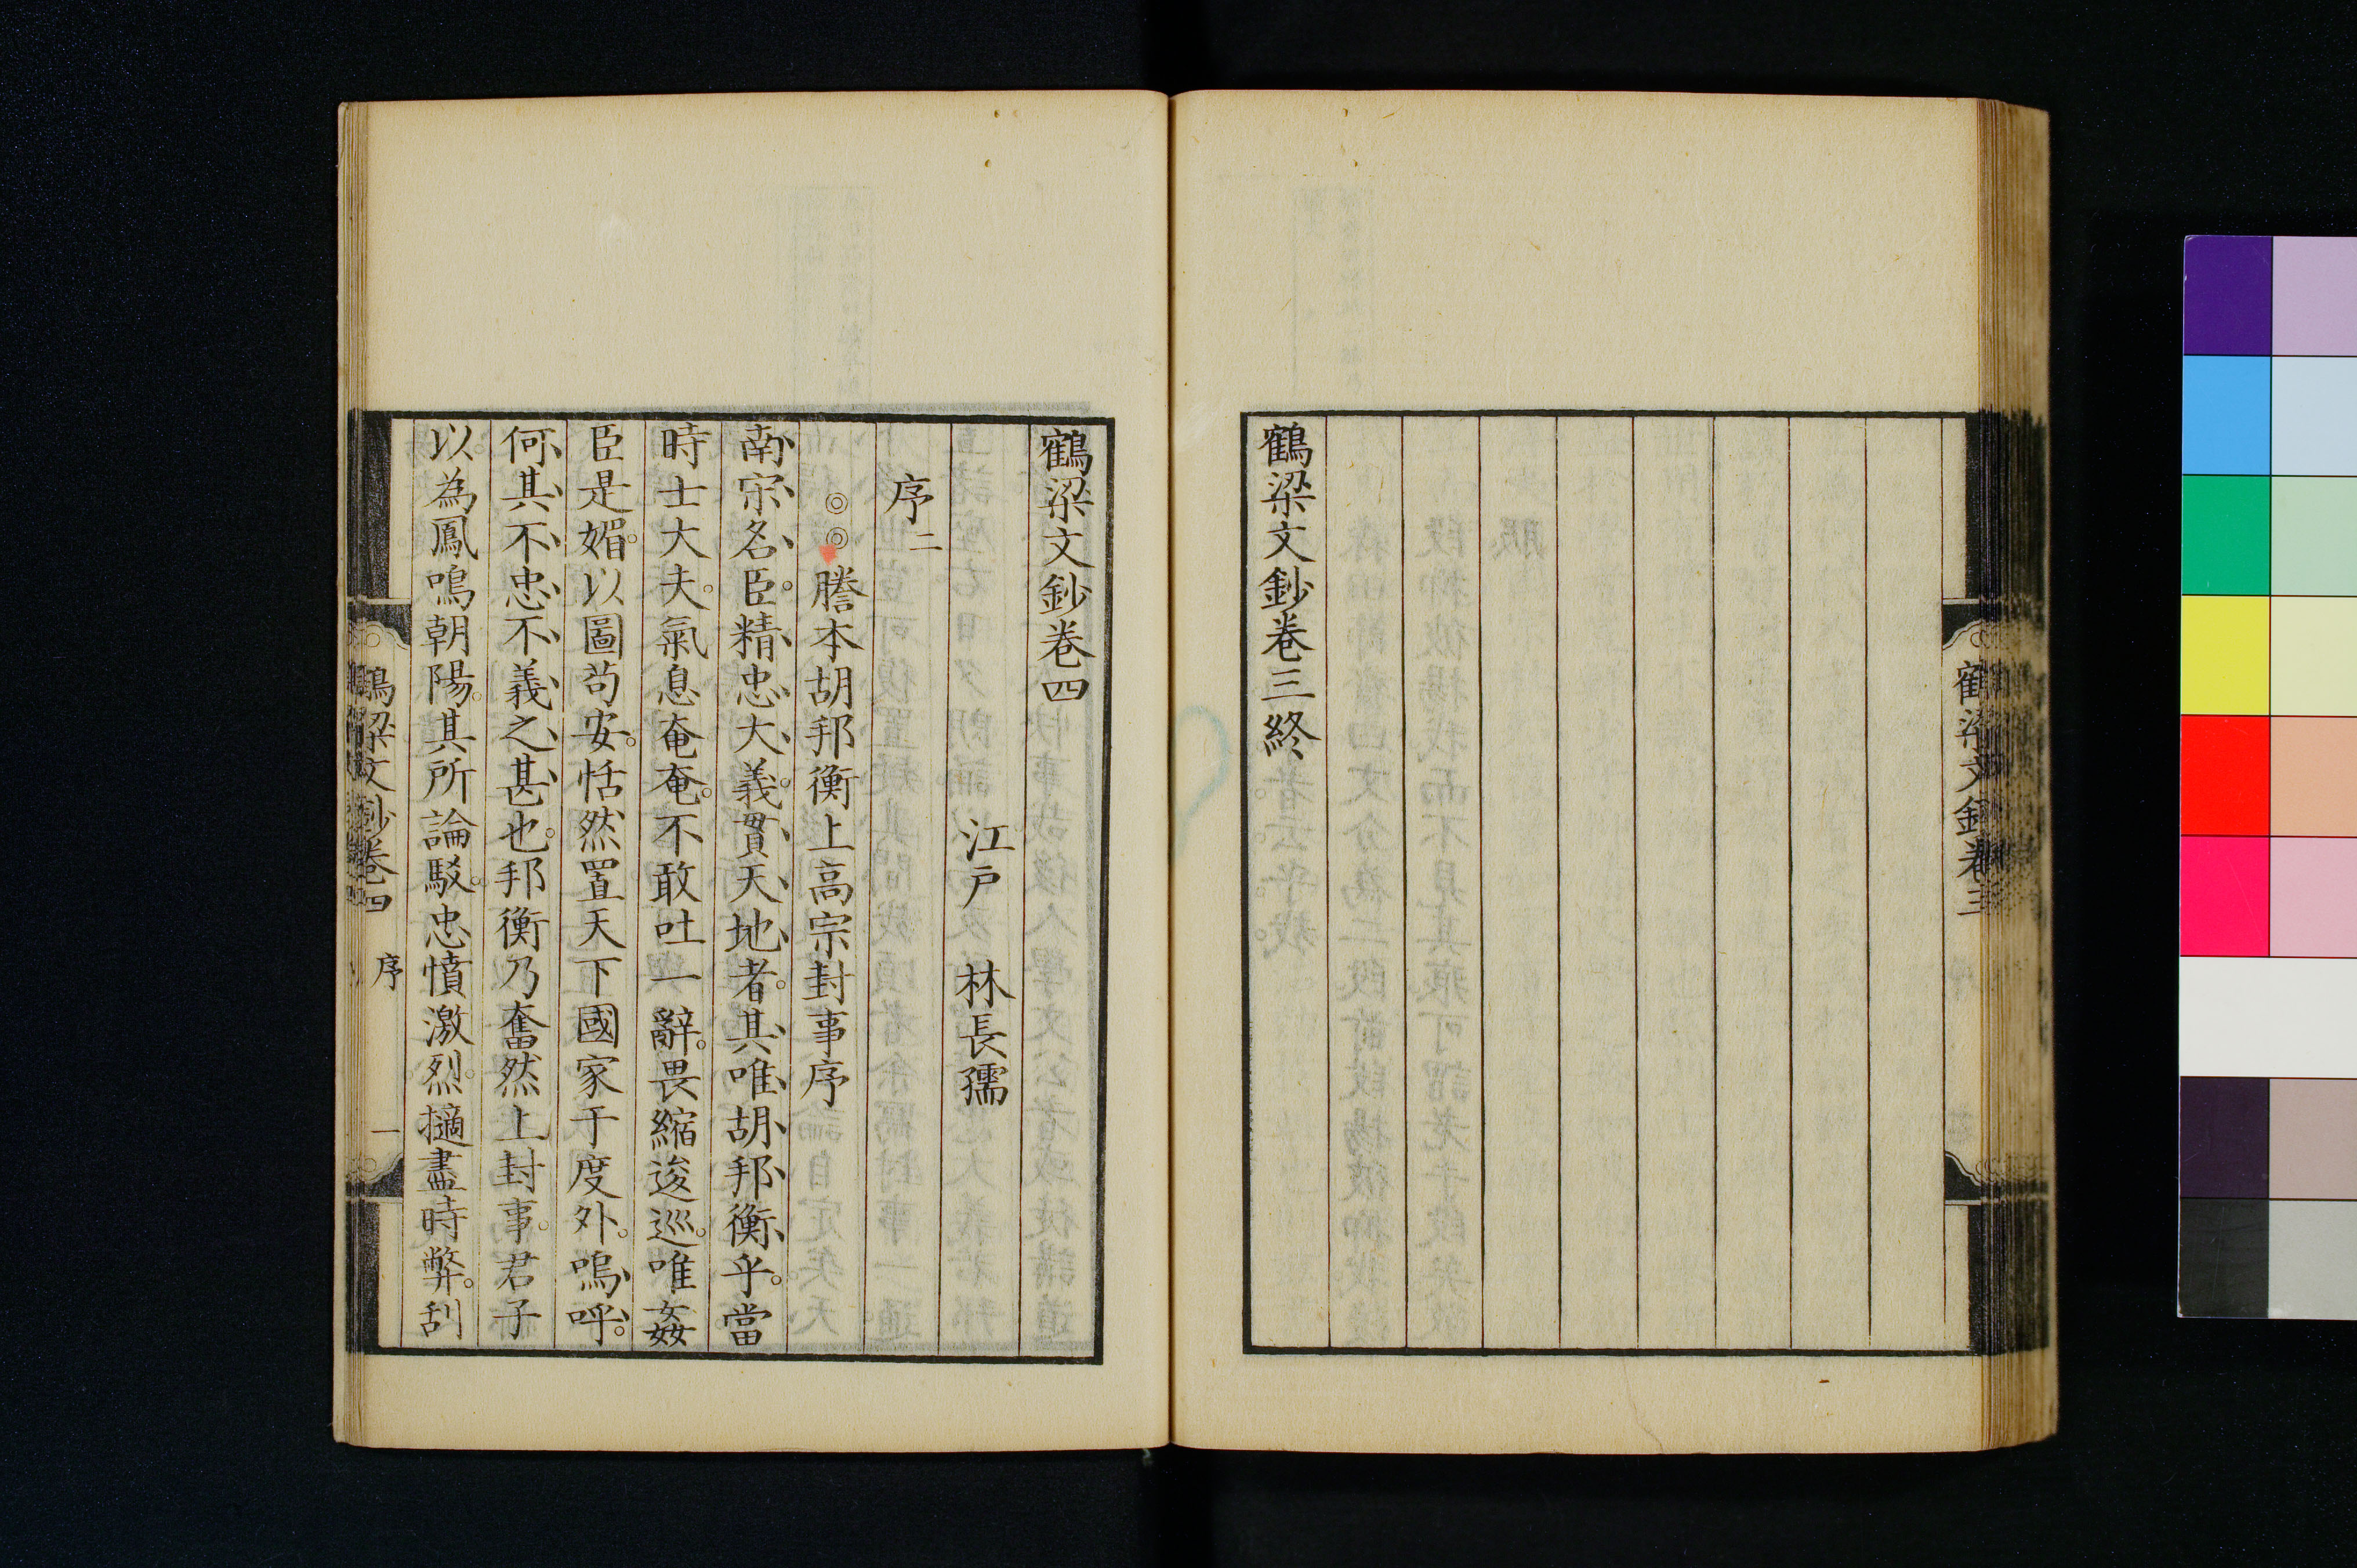 鶴梁文鈔卷三
鶴梁文鈔卷三終
鶴梁文鈔卷四
江戸　林長孺
序二
◎◎謄本胡邦衡上高宗封事序
南宋名臣。精忠大義。貫天地者。其唯胡邦衡乎。當
時士大夫。氣息奄奄。不敢吐一辭。畏縮逡巡。唯姦
臣是媚。以圖苟安。恬然置天下國家于度外。嗚呼。
何其不忠不義之甚也。邦衡乃奮然上封事。君子
以為鳳鳴朝陽。其所論駁。忠憤激烈。擿盡時弊。刮
鶴梁文鈔卷四　序　一